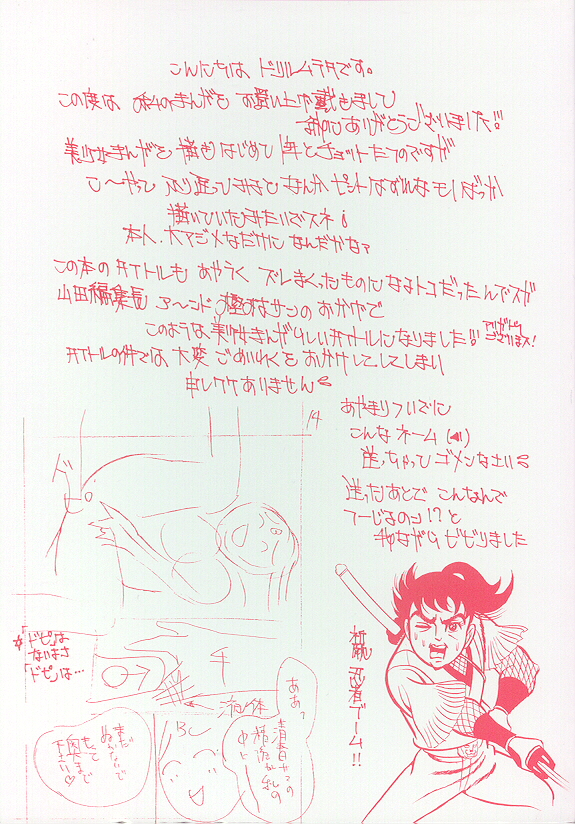 こんにちは ドリルムラタです。
この度は 私のまんがを お買い上げ戴きまして
まことにありがとうございました!!
美少女まんがを 描きはじめて 年とチョットたつのですが
こ〜やって ふり返ってみると なんかピントはずれなモノばっか
描いていたみたいですネ
本人、大マジメなだけに なんだかなァ
この本のタイトルも あやうく ズレまくったものになるトコだったんでスが
山田編集長 ア〜ンド サンのおかげで
このような美少女まんがらしいタイトルになりました!!
アリガトウ
ございまス!
タイトルの件では 大変 ごめいわくを おかけしてしまい
申しワケありません
あやまりついでに
こんなネーム(◀)
送っちゃって ゴメンなさい
送ったあとで こんなんで
いーじゃのう!?と
我ながらビビりました
14
ド
☆「ドピ」は
ないよさ
「ドピ」は…
チ
液体
ああっ
青春
の
BC
まだ
ぬかないで
もっと
奥まで
下さい♡
忍者ブーム!!